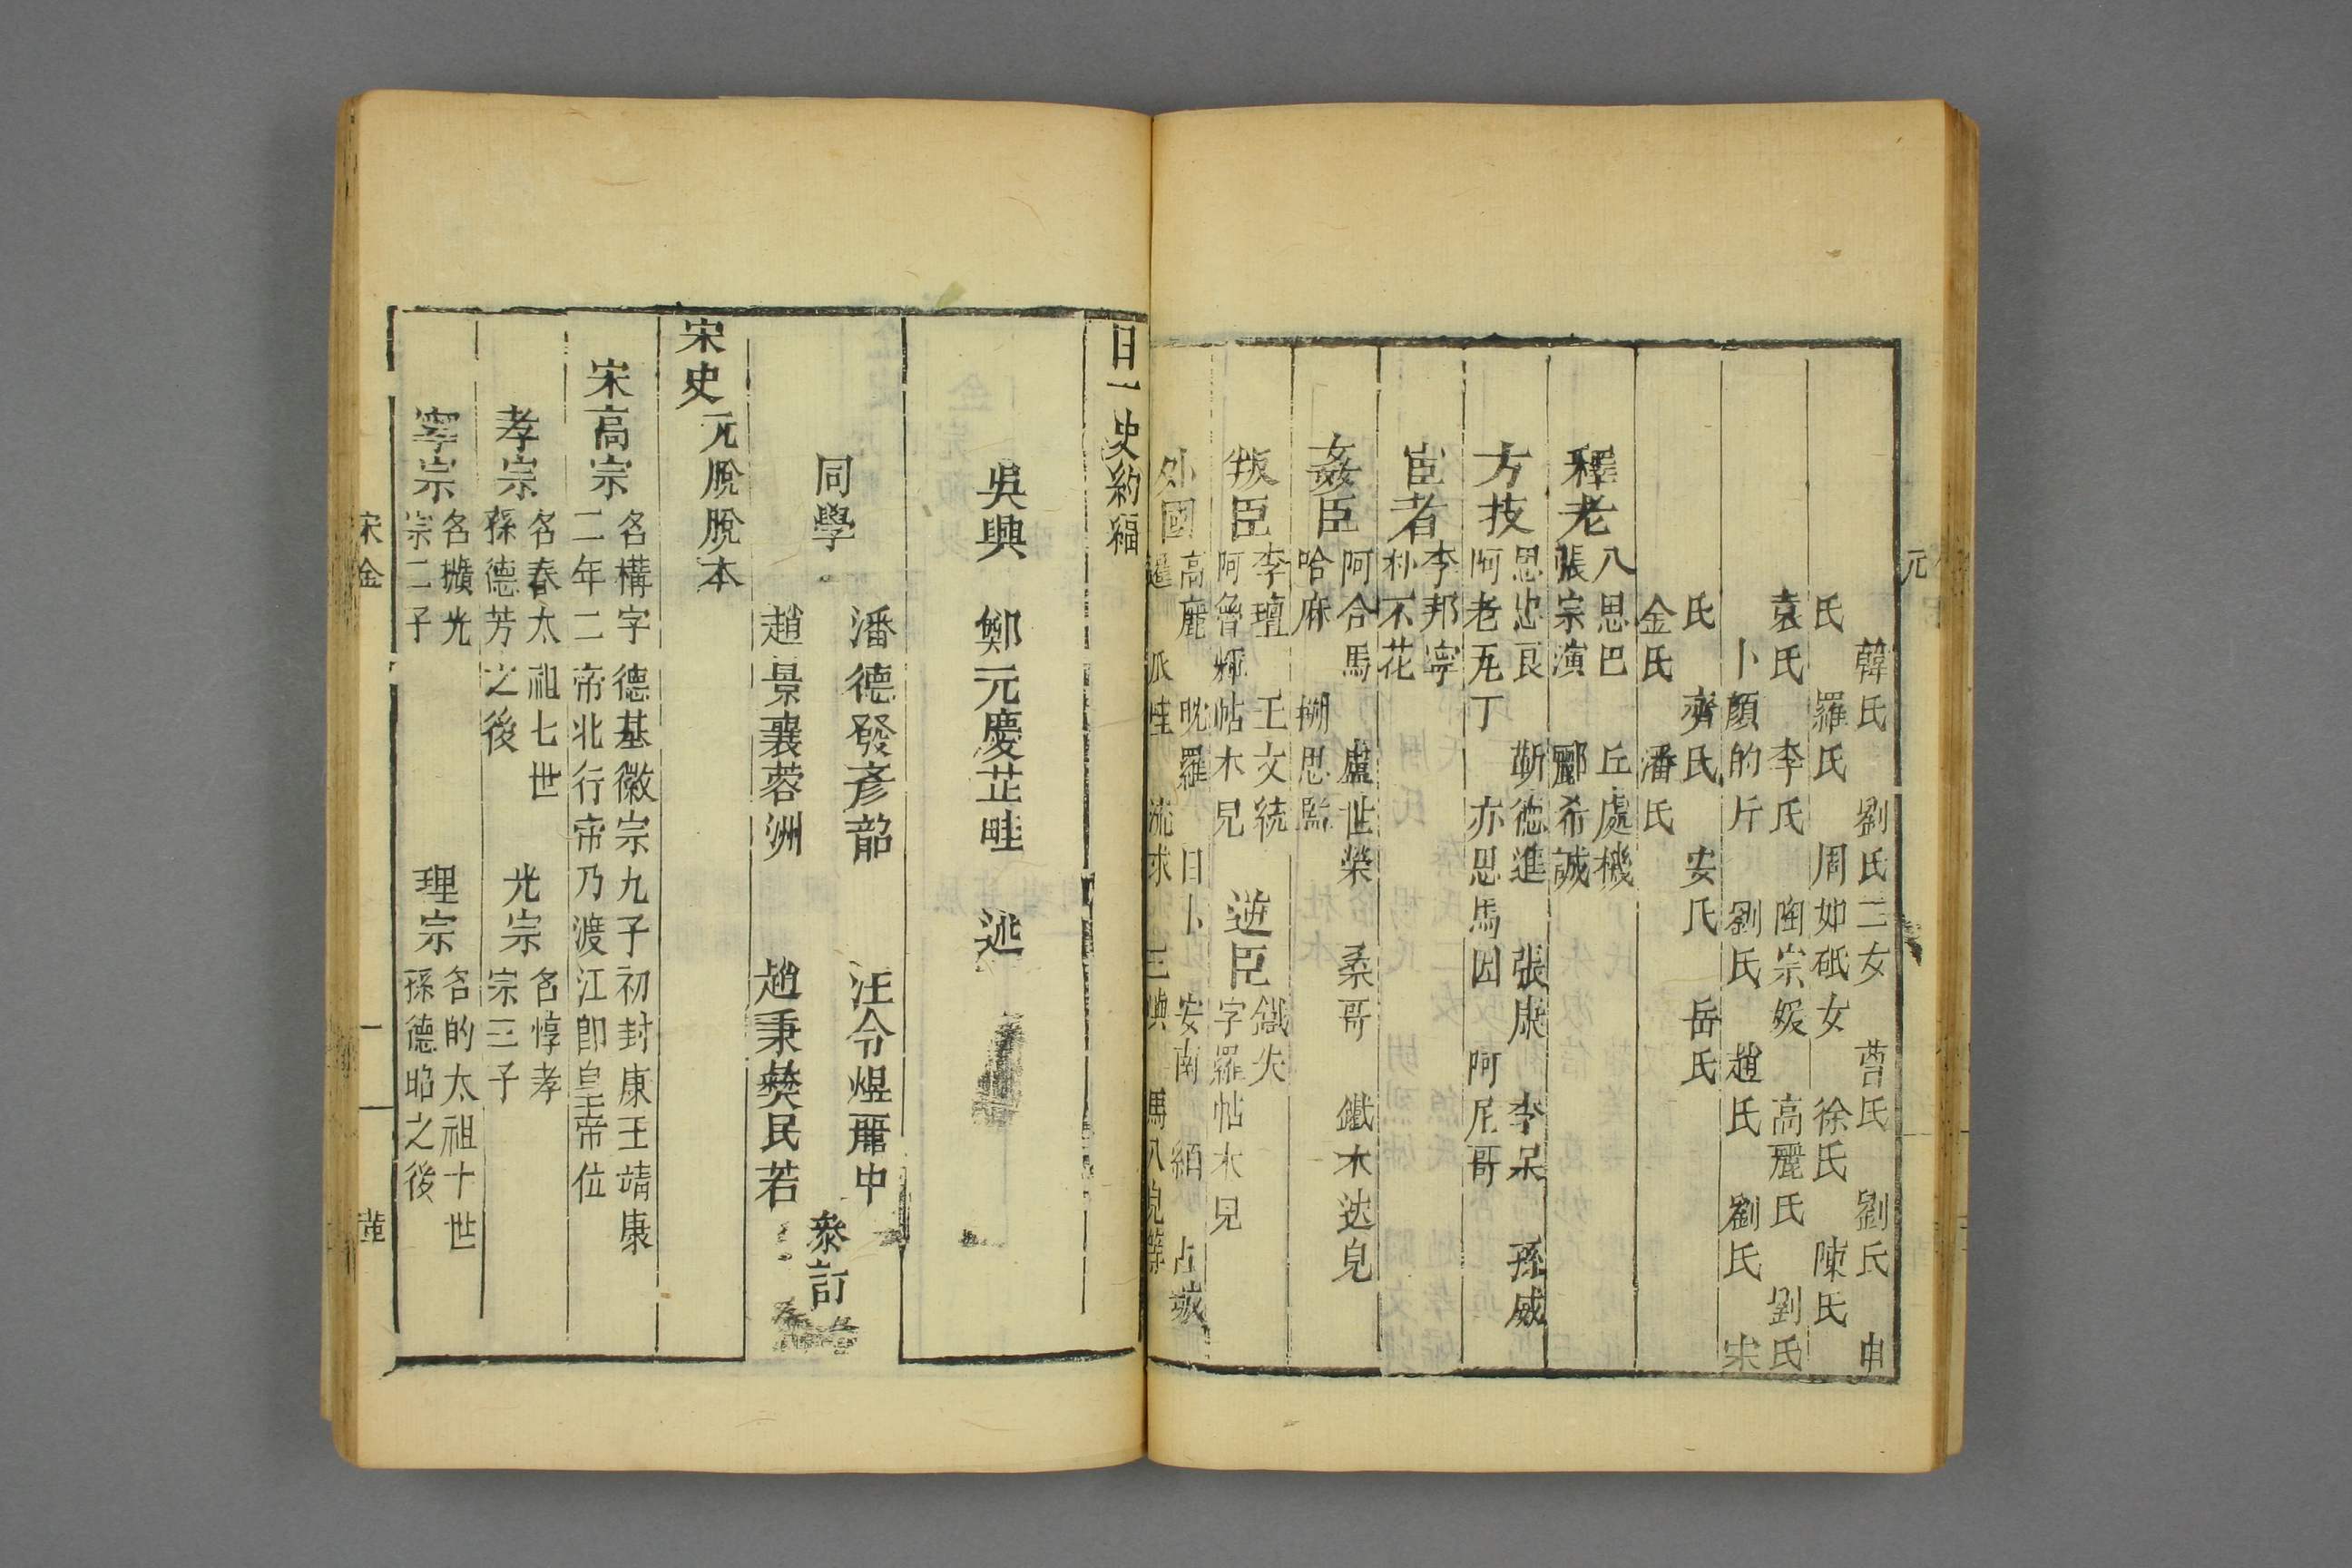 元
韓氏 劉氏二女 曹氏 劉氏 申
氏 羅氏 周如砥女 徐氏 陳氏
袁氏 李氏 陶宗媛 高麗氏 劉氏
卜顏的斤 劉氏 趙氏 劉氏 宋
氏 齊氏 安氏 岳氏
金氏 潘氏
釋老 八思巴 丘處機
張宗演 酈希誠
方技 田忠良 靳德進 張康 李杲 孫威
阿老瓦丁 亦思馬因 阿尼哥
宦者 李邦寧
朴不花
姦臣 阿合馬 盧世榮 桑哥 鐵木迭兒
哈麻 搠思監
叛臣 李璮 王文統
阿魯輝帖木兒
逆臣 鐵失
孛羅帖木兒
外國 高麗 耽羅 日本 安南 緬 占城
暹 爪哇 流求 三嶼 馬八兒等
廿一史約編
吳興 鄭元慶芷畦 述
同學
潘德發彥韶 汪令煜羆中
趙景襄蓉洲 趙秉㷼民若
叅訂
宋史 元脫脫本
宋高宗 名構字德基徽宗九子初封康王靖康
二年二帝北行帝乃渡江卽皇帝位
孝宗 名昚太祖七世
孫德芳之後
光宗 名惇孝
宗三子
寧宗 名擴光
宗二子
理宗 名昀太祖十世
孫德昭之後
宋金 一